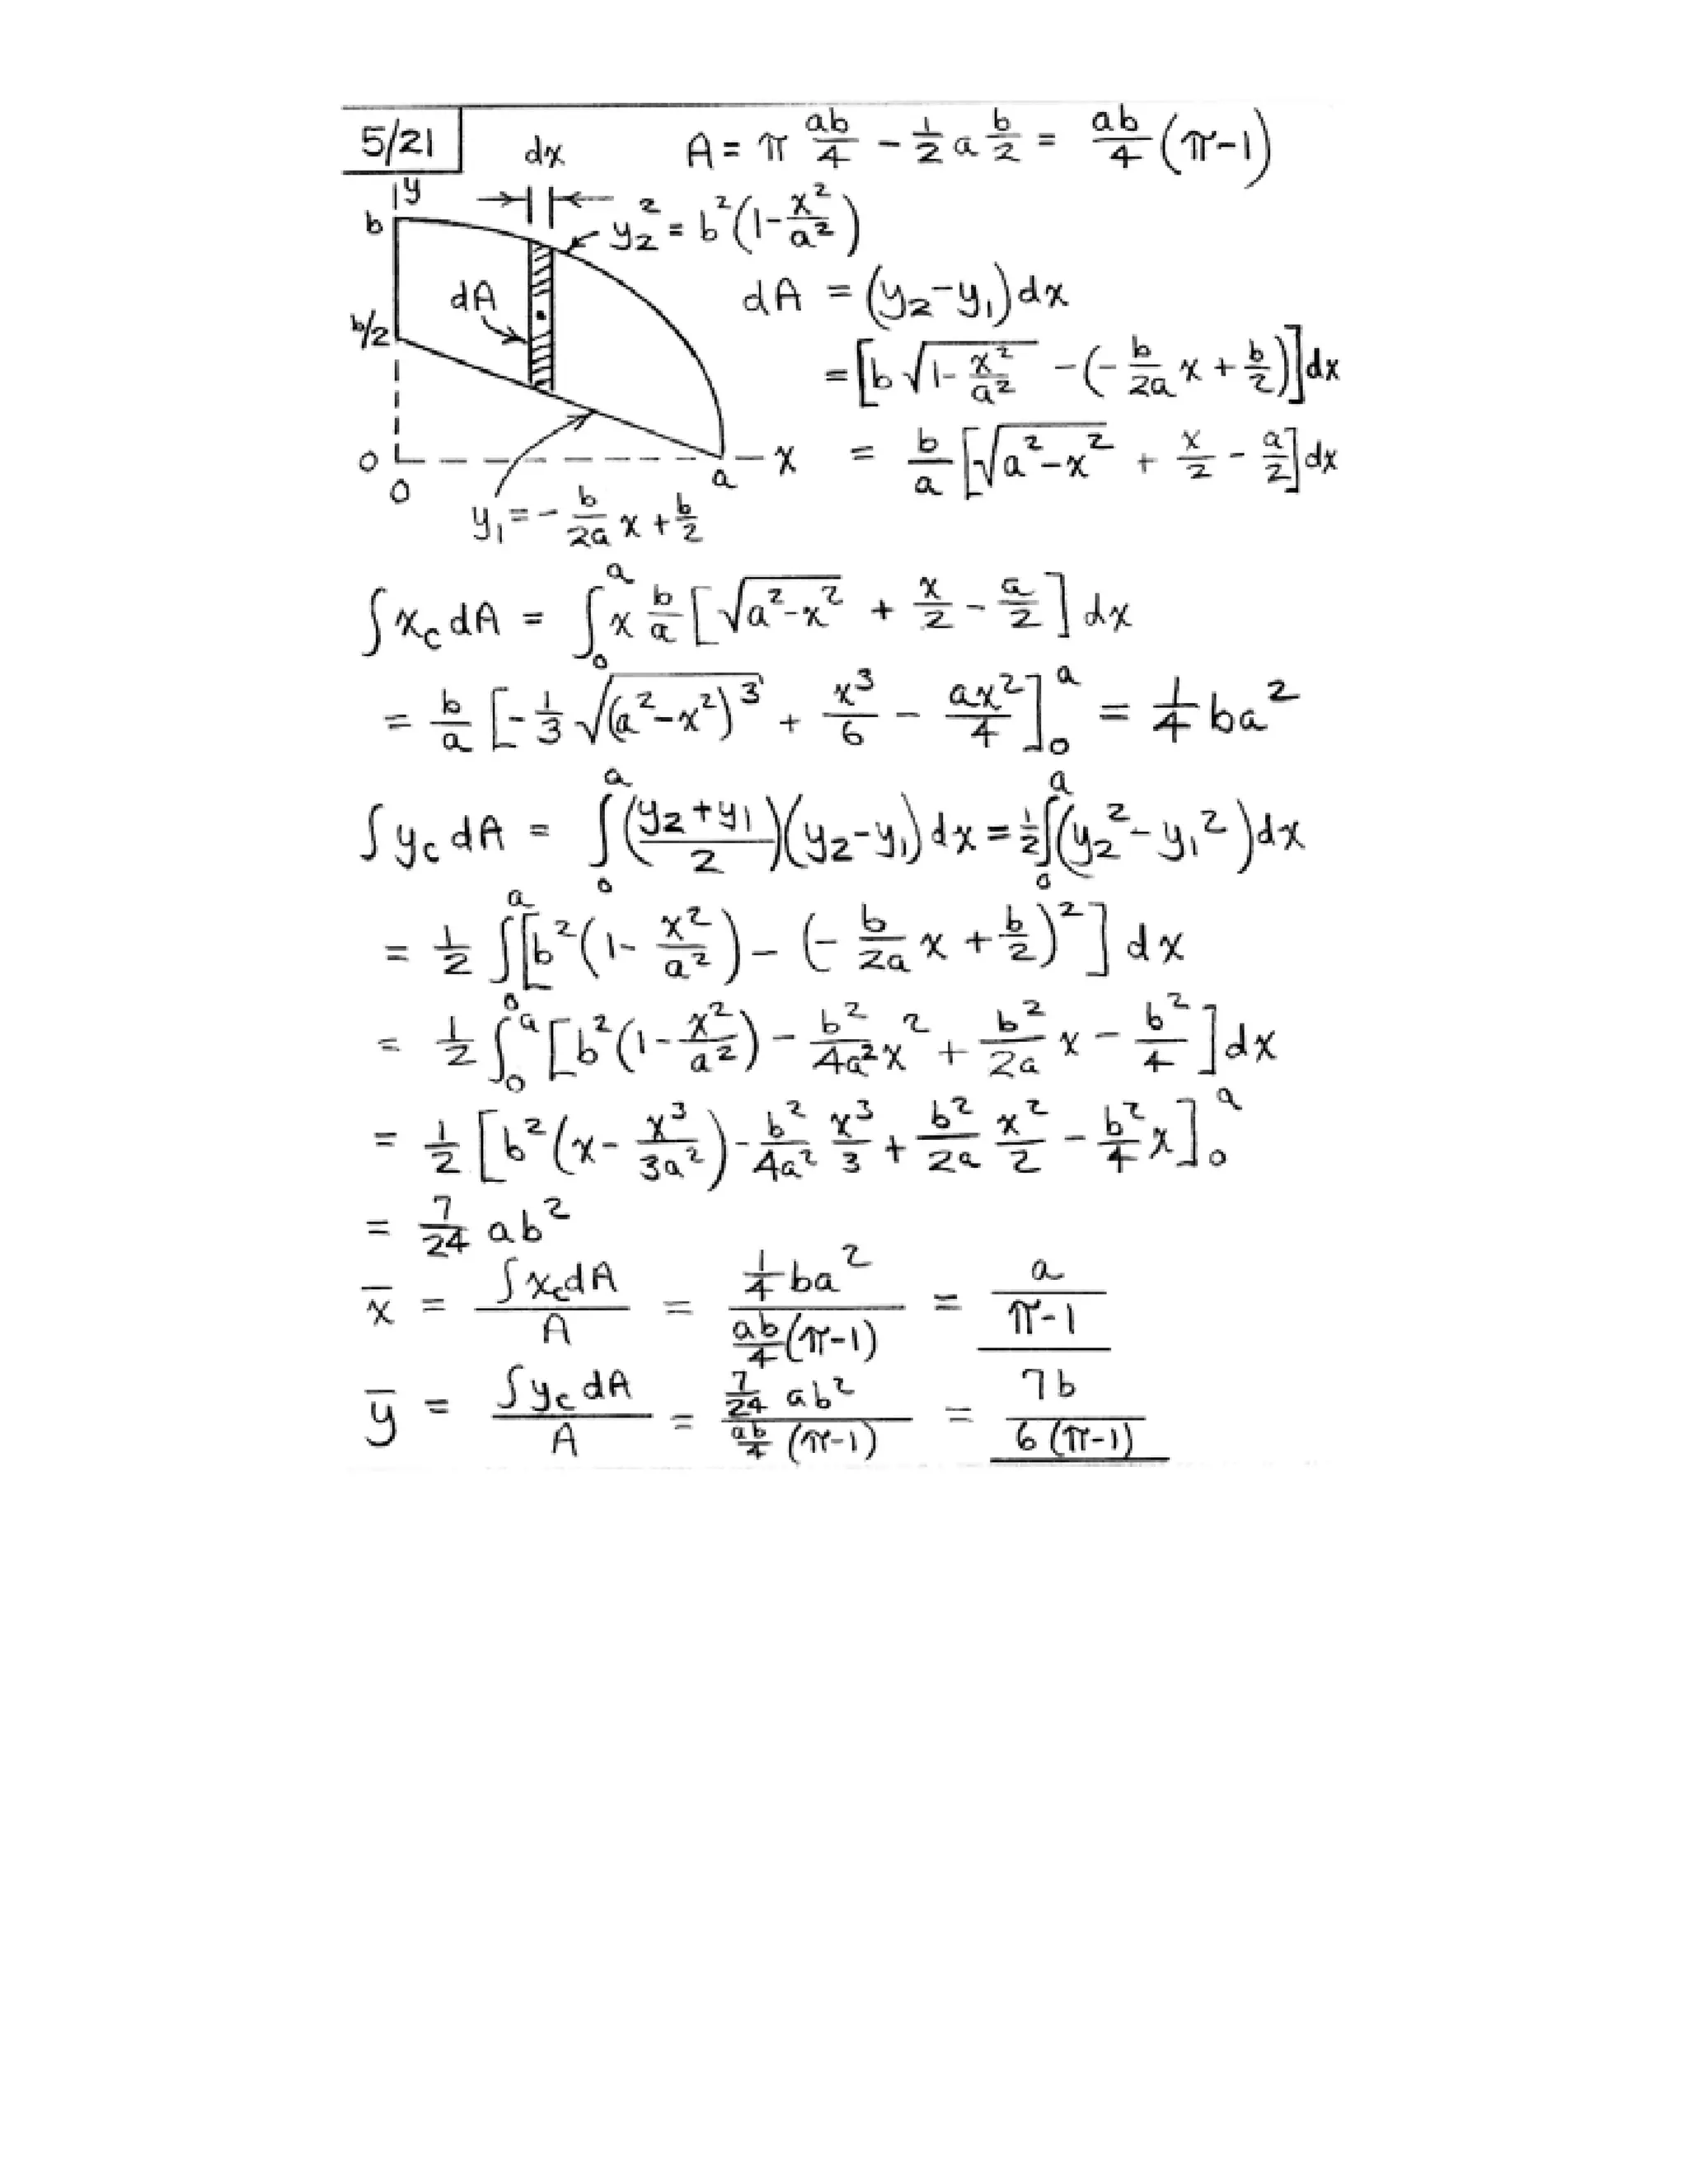 5/21
dx
A = π ab/4 - 1/2 a b/2 = ab/4 (π-1)
y
b
y₂² = b²(1 - x²/a²)
dA
dA = (y₂-y₁)dx
b/2
= [b √(1 - x²/a²) - (- b/2a x + b/2)]dx
0
a
x
= b/a [√(a²-x²) + x/2 - a/2]dx
0
y₁ = - b/2a x + b/2
∫x_c dA = ∫₀ᵃ x b/a [√(a²-x²) + x/2 - a/2] dx
= b/a [-1/3 √((a²-x²)³) + x³/6 - ax²/4]₀ᵃ = 1/4 ba²
∫y_c dA = ∫₀ᵃ ((y₂+y₁)/2)(y₂-y₁)dx = 1/2 ∫₀ᵃ (y₂² - y₁²)dx
= 1/2 ∫₀ᵃ [b²(1 - x²/a²) - (- b/2a x + b/2)²] dx
= 1/2 ∫₀ᵃ [b²(1 - x²/a²) - b²/4a² x² + b²/2a x - b²/4] dx
= 1/2 [b²(x - x³/3a²) - b²/4a² x³/3 + b²/2a x²/2 - b²/4 x]₀ᵃ
= 7/24 ab²
x̄ = ∫x_c dA / A = 1/4 ba² / ab/4 (π-1) = a / π-1
ȳ = ∫y_c dA / A = 7/24 ab² / ab/4 (π-1) = 7b / 6(π-1)